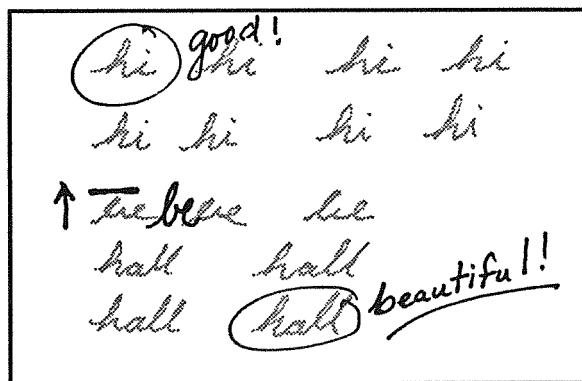 hi good! hi hi hi
hi hi hi hi
be be
hall hall
hall hall beautiful!